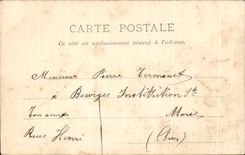 CARTE POSTALE
Ce côté est exclusivement réservé à l'adresse.
Monsieur Pierre
à Bourges Institution Ste
Marie
Rue Henri (Cher)